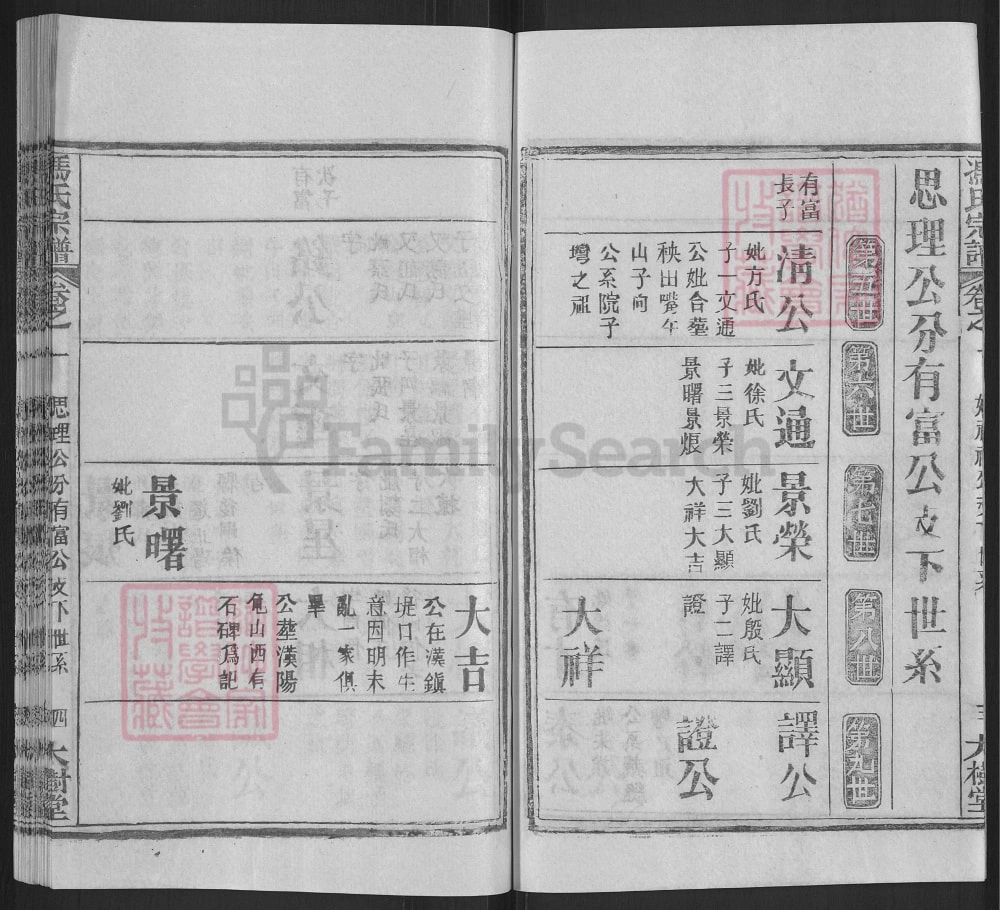 馮氏宗譜
卷之一
三
大樹堂
思理公分有富公攴下世系
第五世
第六世
第七世
第八世
第九世
有富
長子
清公
妣方氏
子一文通
公妣合塟
秧田嘴午
山子向
公系院子
塆之祖
文通
妣徐氏
子三景榮
景曙景烺
景榮
妣劉氏
子三大顯
大祥大吉
大顯
妣殷氏
子二譯
證
譯公
證公
大祥
大吉
公在漢鎮
堤口作生
意因明末
亂一家俱
畢
公塟漢陽
龟山西有
石碑爲記
景曙
妣劉氏
馮氏宗譜
卷之一
思理公分有富公攴下世系
四
大樹堂
FamilySearch